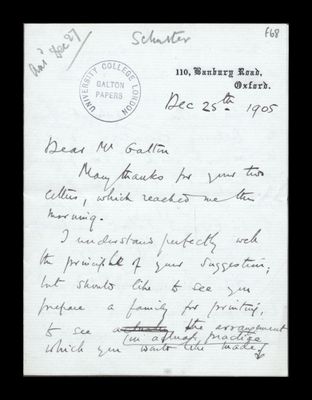 Schuster
f68
Dec 27
UNIVERSITY COLLEGE LONDON
GALTON
PAPERS
110, Banbury Road,
Oxford.
Dec 25th 1905
Dear Mr Galton
Many thanks for your two
letters, which reached me this
morning.
I understand perfectly well
the principle of your suggestion;
but should like to see you
prepare a family for printing,
to see the arrangement
(in actual practice
which you would like made